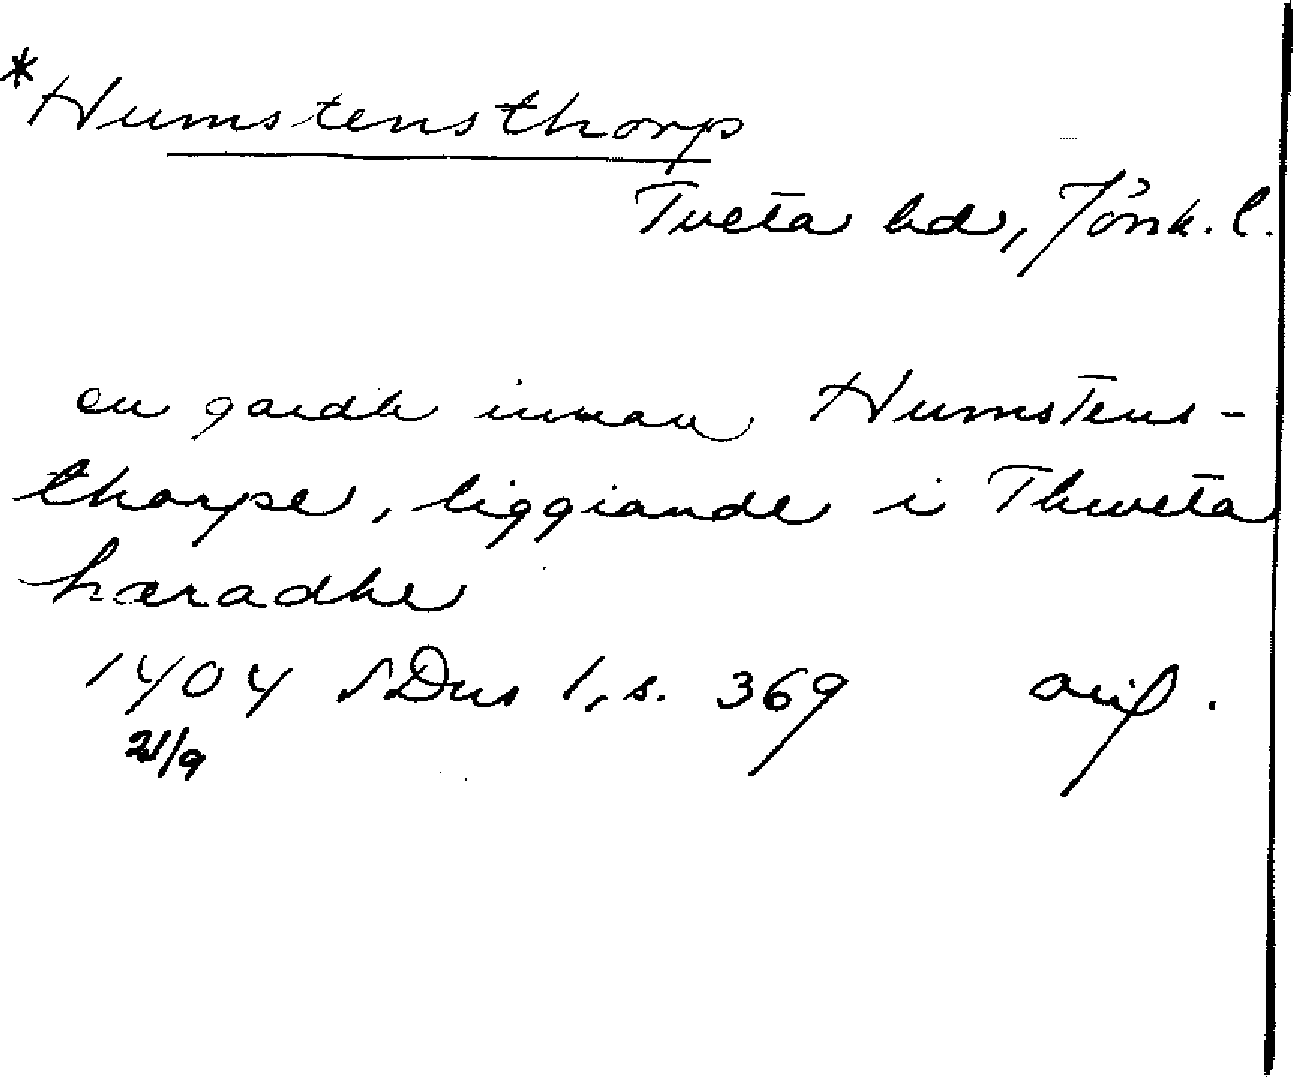 *Humstensthorp
Tveta hd, Jönk. l.
en gardh innan Humstens-
thorpe, liggiande i Thweta
häradhe
1404 SDns 1, s. 369 orig.
21/9